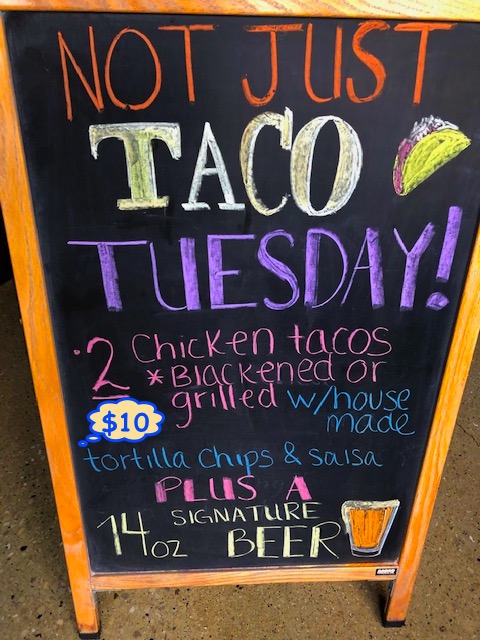 NOT JUST
TACO
TUESDAY!
·2 Chicken tacos
*Blackened or
grilled w/house
made
$10
tortilla chips & salsa
PLUS A
SIGNATURE
14oz BEER